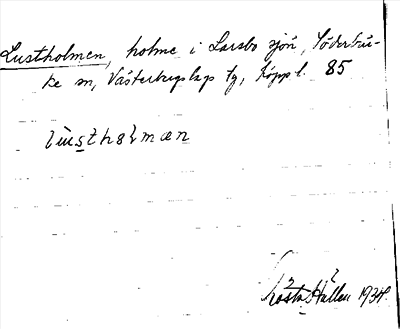 Lustholmen, holme i Larsbo sjön, Söderbär-
ke sn, Västerbergslags tg, Kopp l. 85
lùstholmæn
Gösta Hallen 1934.